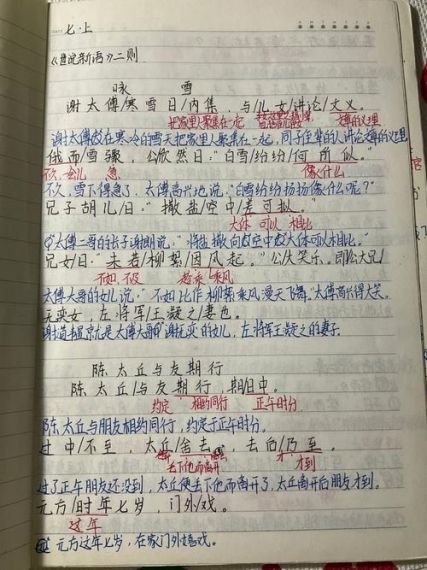 七·上
《世说新语》二则
咏 雪
谢太傅/寒雪日/内集，与/儿女/讲论/文义。
把家里人聚集在一起
谢太傅在寒冷的雪天把家里人聚集在一起，同子侄辈的人讲论文章的义理
俄而/雪骤，公/欣然曰："白雪/纷纷/何所似。"
不久 急 像什么
不久，雪下得急了，太傅高兴地说："白雪纷纷扬扬像什么呢？"
兄子胡儿/曰："撒盐/空中/差可拟。"
大体 可以 相比
太傅二哥的长子谢朗说，"将盐撒向空中大体可以相比。"
兄女曰："未若/柳絮/因风起。"公/大笑乐。即/公大兄/
不如 不及 趁、乘 乘风
太傅大哥的女儿说："不如比作柳絮乘风漫天飞舞。"太傅高兴得大笑。
无奕女，左将军/王凝之/妻也。
谢道韫就是太傅大哥谢无奕的女儿，左将军王凝之的妻子。
陈太丘与友期行
陈太丘/与友期行，期/日中。
约定 相约同行 正午时分
陈太丘与朋友相约同行，约定于正午时分。
过中/不至，太丘/舍去，去后/乃至。
丢下他而离开 才 才到
过了正午朋友还没到，太丘便丢下他而离开了，太丘离开后朋友才到。
元方/时年七岁，门外/戏。
这年
元方这年七岁，在家门外嬉戏。